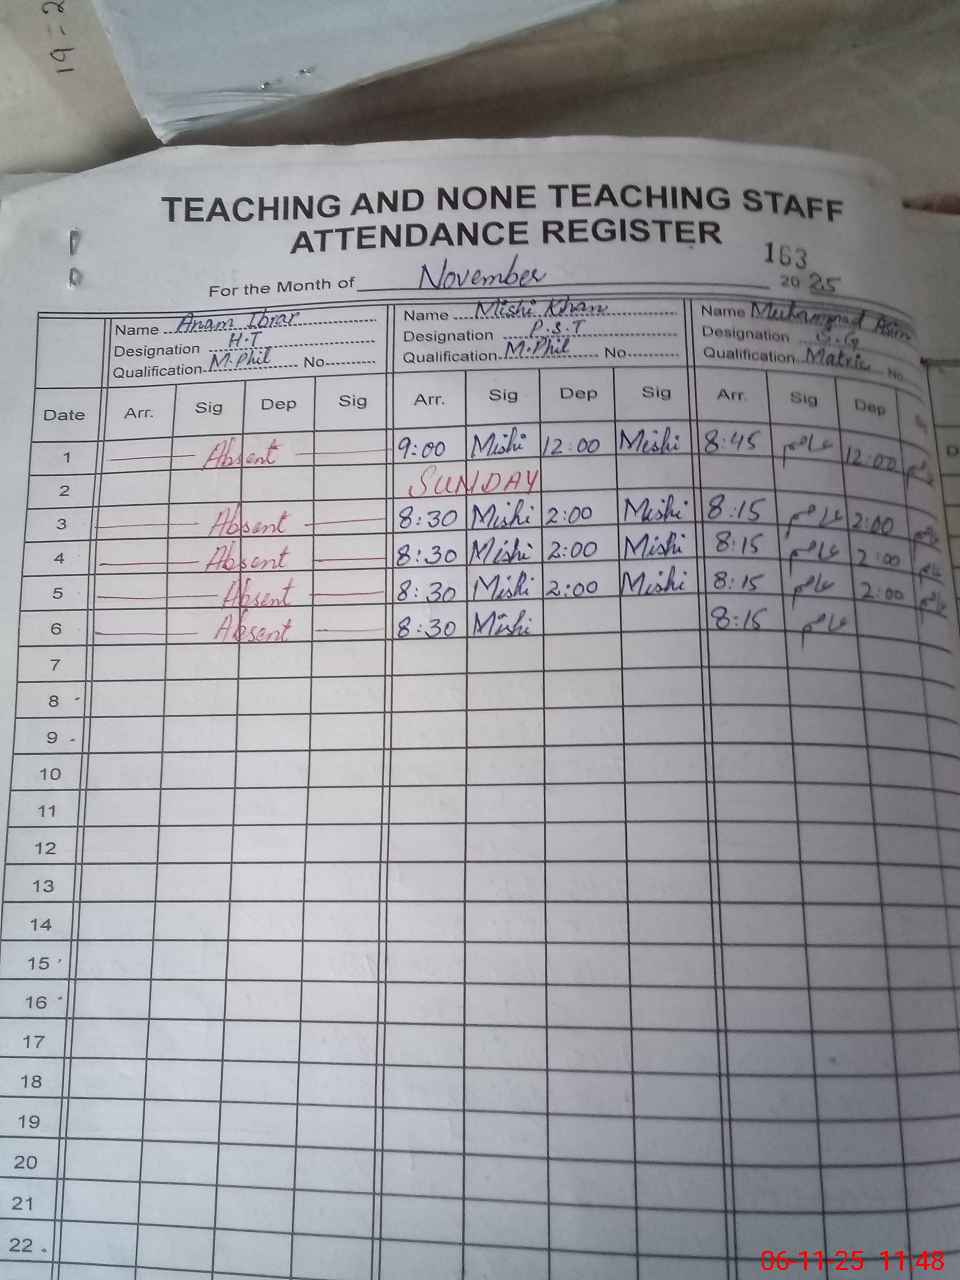 19=2
TEACHING AND NONE TEACHING STAFF
ATTENDANCE REGISTER
163
For the Month of November 2025
Name Anam Ibrar Name Mishi Khan Name Muhammad
Designation H.T Designation P.S.T Designation
Qualification M.Phil No Qualification M.Phil No Qualification Matric No
Date Arr. Sig Dep Sig Arr. Sig Dep Sig Arr. Sig Dep
1 Absent 9:00 Mishi 12:00 Mishi 8:45 عاصم 12:00 عاصم
2 SUNDAY
3 Absent 8:30 Mishi 2:00 Mishi 8:15 عاصم 2:00 عاصم
4 Absent 8:30 Mishi 2:00 Mishi 8:15 عاصم 2:00 عاصم
5 Absent 8:30 Mishi 2:00 Mishi 8:15 عاصم 2:00 عاصم
6 Absent 8:30 Mishi 8:15 عاصم
7
8
9
10
11
12
13
14
15
16
17
18
19
20
21
22
06-11-25 11:48